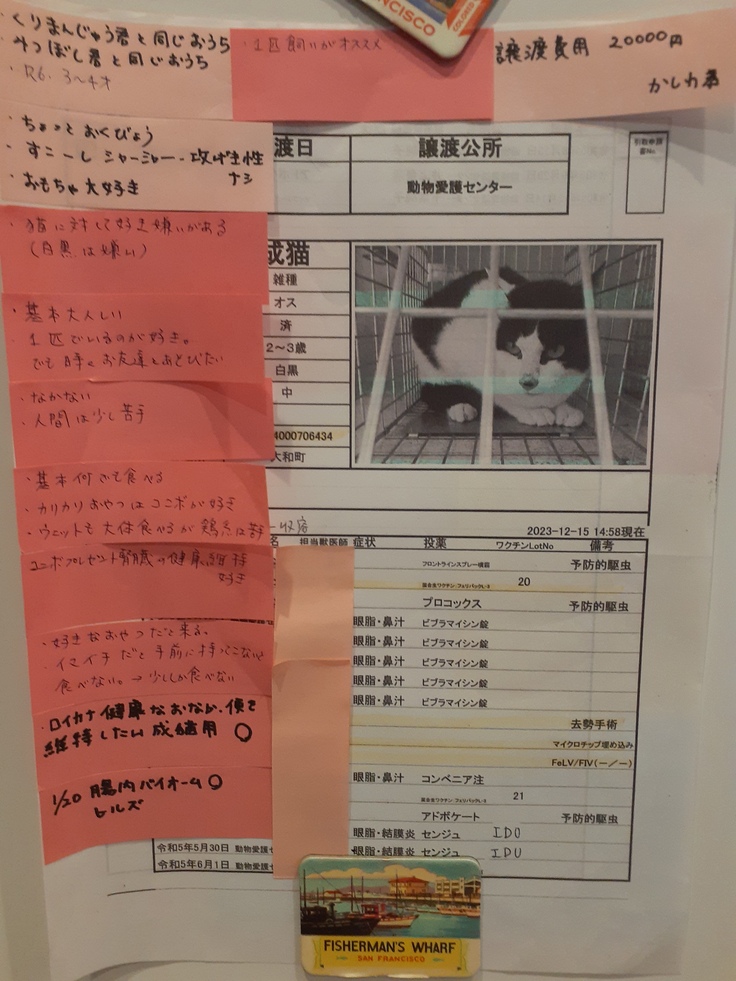 NCISCO
COLORED
・くりまんじゅう君と同じおうち
・みつぼし君と同じおうち
・R6. 3〜4才
・1匹飼いがオススメ
譲渡費用 20000円
かしわ君
・ちょっと おくびょう
・すこーし シャーシャー・攻げき性
ナシ
・おもちゃ大好き
渡日
譲渡公所
動物愛護センター
・猫に対して好き嫌いがある
(白黒は嫌い)
成猫
雑種
オス
済
2〜3歳
白黒
中
4000706434
大和町
・基本大人しい
・1匹でいるのが好き。
でも時々お友達とあそびたい
・なかない
・人間は少し苦手
・基本何でも食べる
・カリカリおやつはコンボが好き
・ウェットも大体食べるが鶏系は苦手
ー収容
2023-12-15 14:58現在
名 担当獣医師 症状 投薬 ワクチンLotNo 備考
コンボプレゼント腎臓の健康維持
好き
フロントラインスプレー 予防的駆虫
20
プロコックス 予防的駆虫
眼脂・鼻汁 ビブラマイシン錠
眼脂・鼻汁 ビブラマイシン錠
眼脂・鼻汁 ビブラマイシン錠
眼脂・鼻汁 ビブラマイシン錠
眼脂・鼻汁 ビブラマイシン錠
・好きなおやつだと来る。
・イマイチだと手前に持ってこないと
食べない。→少ししか食べない
去勢手術
マイクロチップ埋め込み
FeLV/FIV(−/−)
・ロイカナ健康なおなか.便を
維持したい成猫用 ○
1/20 腸内バイオーム○
ヒルズ
眼脂・鼻汁 コンベニア注
21
アドボケート 予防的駆虫
眼脂・結膜炎 センジュ IDU
令和5年5月30日 動物愛護セ
眼脂・結膜炎 センジュ IDU
令和5年6月1日 動物愛護セ
FISHERMAN'S WHARF
SAN FRANCISCO